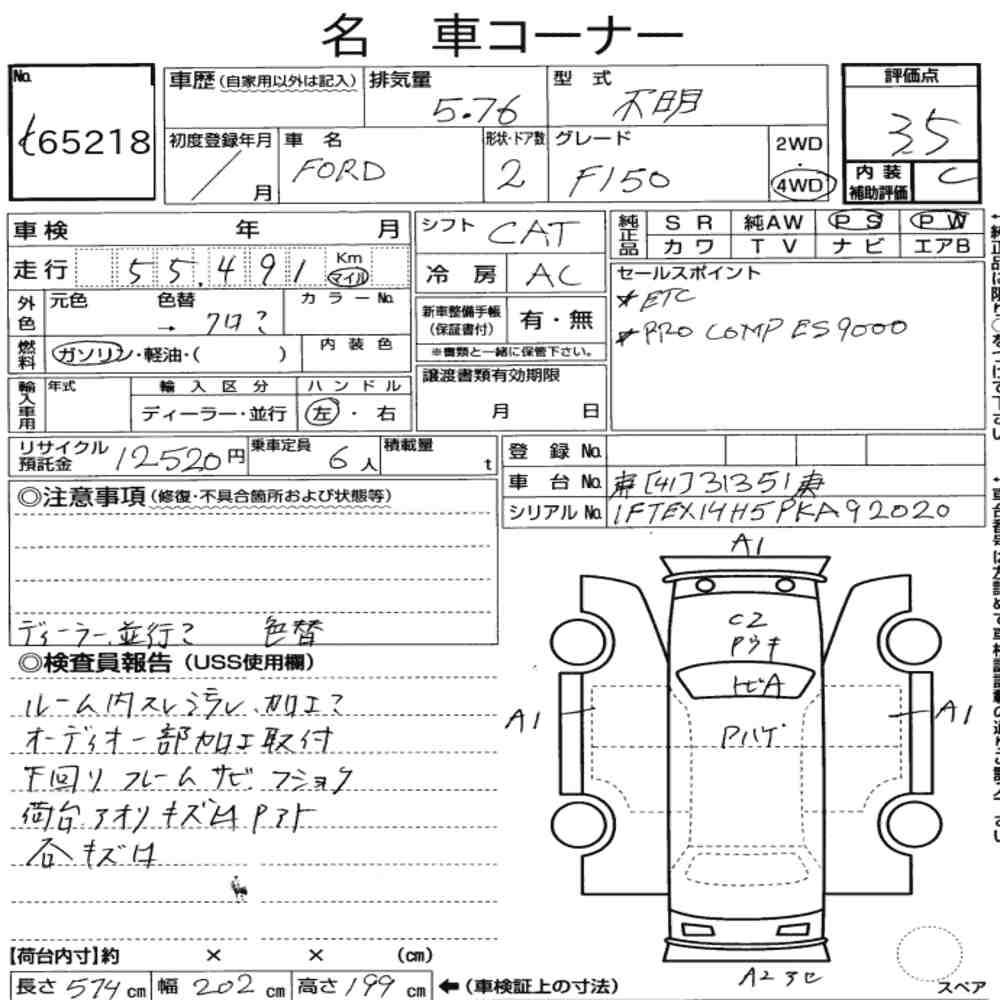 名 車コーナー
No. 65218
車歴(自家用以外は記入) 排気量 5.76 型 式 不明 評価点 3.5
初度登録年月 / 月 車 名 FORD 形状・ドア数 2 グレード F150 2WD・4WD 内装補助評価 C
車検 年 月 シフト CAT 純正品 SR 純AW PS PW
カワ TV ナビ エアB
走行 55,491 Km マイル 冷 房 AC
セールスポイント
*ETC
*PRO COMP ES9000
外色 元色 色替 → クロ? カラーNo.
新車整備手帳(保証書付) 有・無
※書類と一緒に保管下さい。
燃料 ガソリン・軽油・( ) 内装色
譲渡書類有効期限
月 日
輸入車用 年式 輸入区分 ハンドル
ディーラー・並行 左・右
リサイクル預託金 12520円 乗車定員 6人 積載量 t
登 録 No.
車 台 No. 東[41]31351東
シリアル No. 1FTEX14H5PKA92020
◎注意事項(修復・不具合箇所および状態等)
ディーラー、並行? 色替
◎検査員報告(USS使用欄)
ルーム内スレ、加工?
オーディオ一部加工取付
下回り フレームサビ フショク
荷台アオリキズ凹Pアト
各キズ凹
A1
C2
Pウキ
トビA
A1
Pハゲ
A1
A2
【荷台内寸】約 × × (cm)
長さ 574 cm 幅 202 cm 高さ 199 cm ←(車検証上の寸法)
スペア